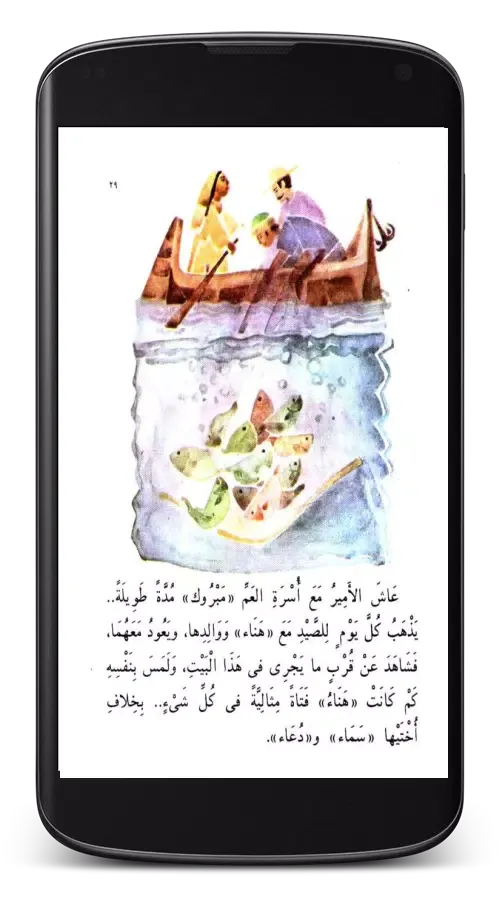 ٢٩
عَاشَ الأَمِيرُ مَعَ أُسْرَةِ العَمِّ «مَبْرُوك» مُدَّةً طَوِيلَةً..
يَذْهَبُ كُلَّ يَوْمٍ لِلصَّيْدِ مَعَ «هَنَاء» وَوَالِدِها، ويَعُودُ مَعَهُمَا،
فَشَاهَدَ عَنْ قُرْبٍ ما يَجْرِى فى هَذَا الْبَيْتِ، وَلَمَسَ بِنَفْسِهِ
كَمْ كَانَتْ «هَنَاءُ» فَتَاةً مِثَالِيَّةً فى كُلِّ شَىْءٍ.. بِخِلافِ
أُخْتَيْها «سَمَاء» و«دُعَاء».